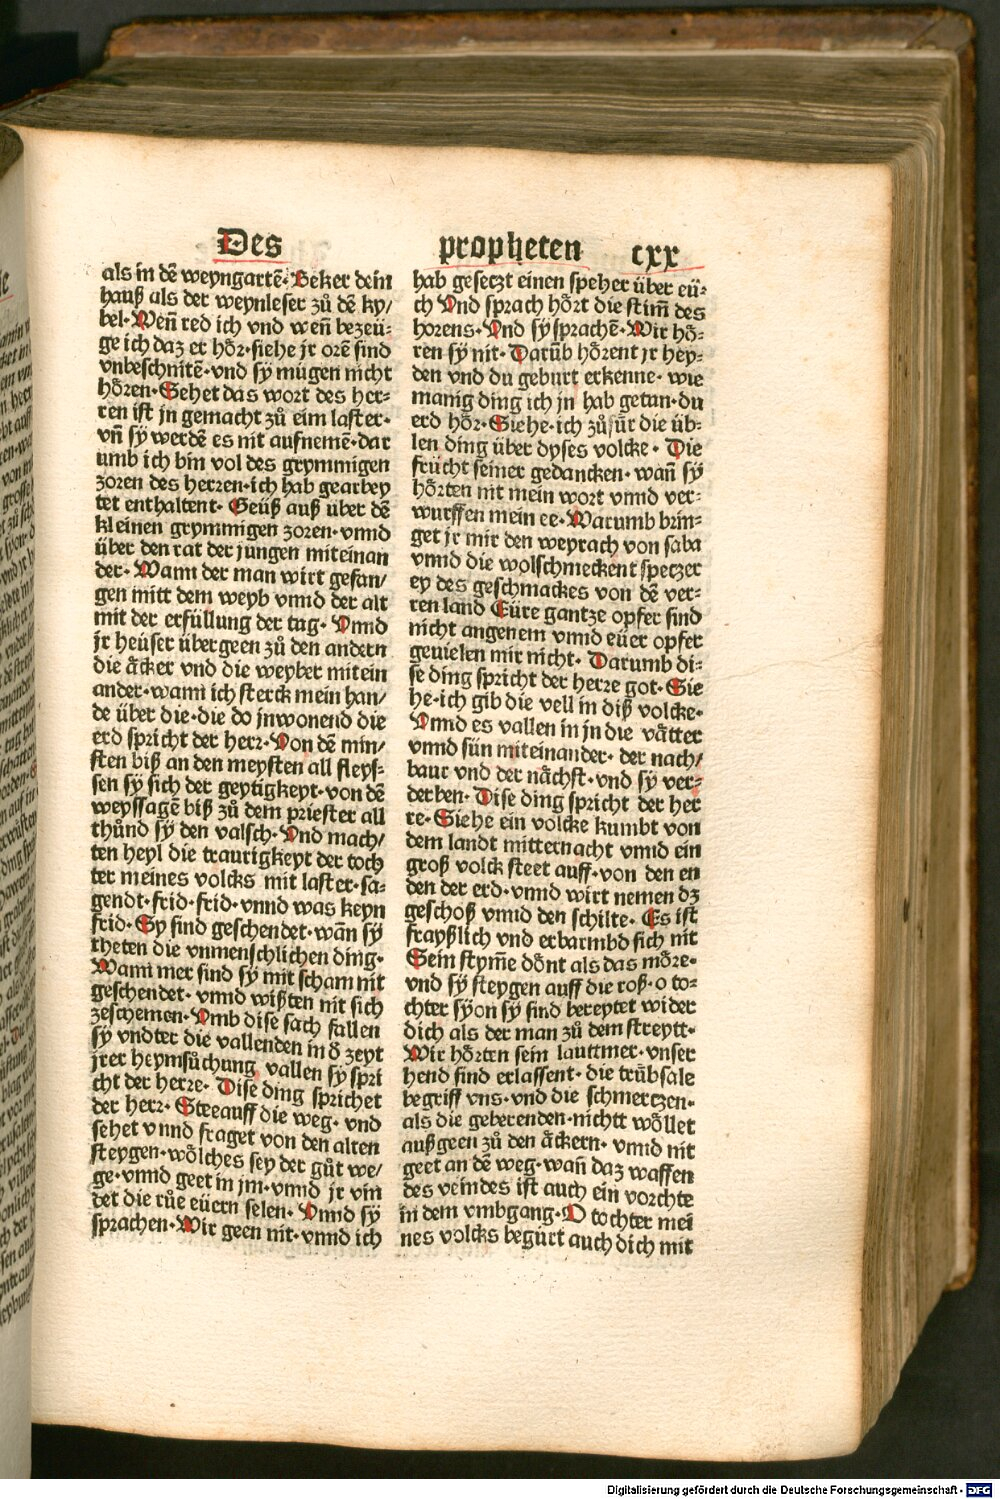 Des propheten cxx
als in dē weyngartē· Beker dein
hauß als der weynleser zů dē ky/
bel· Weñ red ich vnd weñ bezeü-
ge ich daz er hör· siehe jr orē sind
vnbeschnitē· vnd sy mügen nicht
hören· Sehet das wort des her-
ren ist jn gemacht zů eim laster·
vñ sy werdē es nit aufnemē· dar
umb ich bin vol des grymmigen
zoren des herren· ich hab gearbey
tet enthaltent· Geüß auß über dē
kleinen grymmigen zoren· vnnd
über den rat der jungen miteinan
der· Wann der man wirt gefan/
gen mitt dem weyb vnnd der alt
mit der erfüllung der tag· Vnnd
jr heüser übergeen zů den andern
die äcker vnd die weyber mitein
ander· wann ich sterck mein han/
de über die· die do jnwonend die
erd spricht der herr· Von dē min/
sten biß an den meysten all fleys-
sen sy sich der geytigkeyt· von dē
weyssagē biß zů dem priester all
thůnd sy den valsch· Vnd mach/
ten heyl die traurigkeyt der toch
ter meines volcks mit laster· sa-
gendt· frid· frid· vnnd was keyn
frid· Sy sind geschendet· wān sy
theten die vnmenschlichen ding·
Wann mer sind sy mit scham nit
geschendet· vnnd wißten nit sich
zeschemen· Vmb dise sach fallen
sy vndter die vallenden in d̄ zeyt
jrer heymsůchung vallen sy spri
cht der herre· Dise ding sprichet
der herr· Steeauff die weg· vnd
sehet vnnd fraget von den alten
steygen· wölches sey der gůt we/
ge· vnnd geet in jm· vnnd jr vin
det die růe eüern selen· Vnnd sy
sprachen· Wir geen nit· vnnd ich
hab gesetzt einen speher über eü-
ch Vnd sprach hört die stim̄ des
horens· Vnd sy sprachē· Wir hö-
ren sy nit· Darūb hörent jr hey-
den vnd du geburt erkenne· wie
manig ding ich jn hab getan· du
erd hör· Siehe· ich zůfür die üb-
len ding über dyses volcke· Die
frücht seiner gedancken· wañ sy
hörten nit mein wort vnnd ver-
wurffen mein ee· Warumb brin-
get jr mir den weyrach von saba
vnnd die wolschmeckent spetzer
ey des geschmackes von dē ver-
ren land Eüre gantze opfer sind
nicht angenem vnnd eüer opfer
geuielen mir nicht· Darumb di-
se ding spricht der herre got· Sie
he· ich gib die vell in diß volcke·
Vnnd es vallen in jn die vätter
vnnd sün miteinander· der nach/
baur vnd der nächst· vnd sy ver-
derben· Dise ding spricht der her
re· Siehe ein volcke kumbt von
dem landt mitternacht vnnd ein
groß volck steet auff· von den en
den der erd· vnnd wirt nemen dz
geschoß vnnd den schilte· Es ist
frayßlich vnd erbarmbd sich nit
Sein stym̄e dönt als das möre·
vnd sy steygen auff die roß· o to-
chter syon sy sind bereytet wider
dich als der man zů dem streytt·
Wir hörten sein lauttmer· vnser
hend sind erlassent· die trübsale
begriff vns· vnd die schmertzen·
als die geberenden· nichtt wöllet
außgeen zů den äckern· vnnd nit
geet an dē weg· wañ daz waffen
des veindes ist auch ein vorchte
in dem vmbgang· O tochter mei
nes volcks begürt auch dich mit
Digitalisierung gefördert durch die Deutsche Forschungsgemeinschaft - DFG